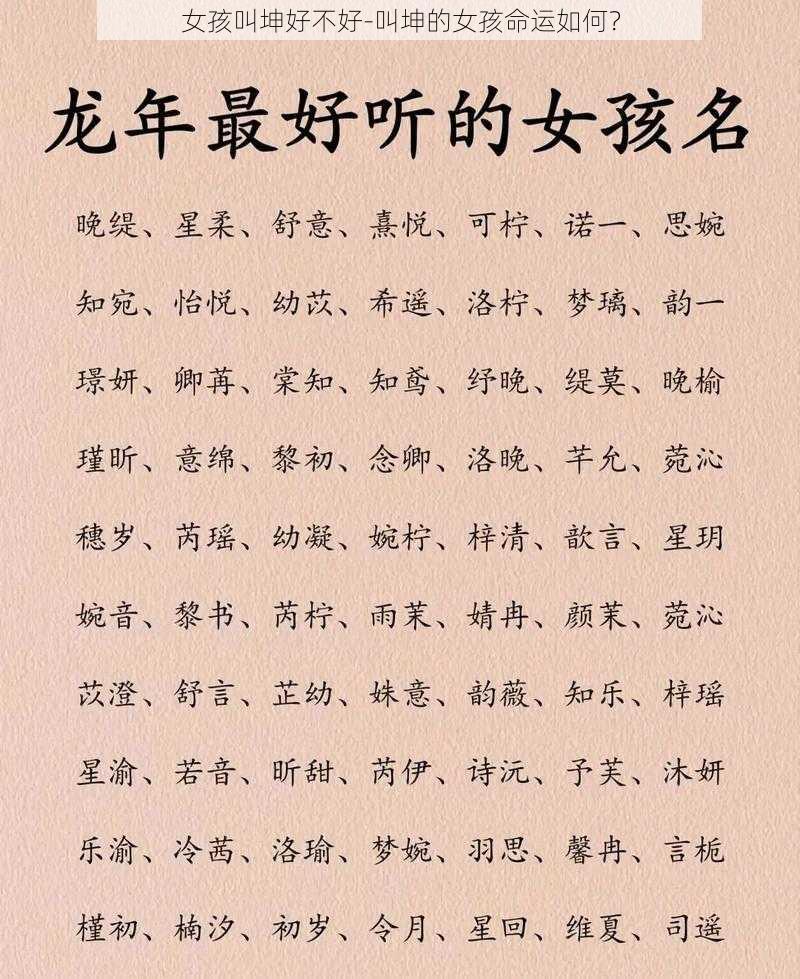 女孩叫坤好不好-叫坤的女孩命运如何?
龙年最好听的女孩名
晚缇、星柔、舒意、熹悦、可柠、诺一、思婉
知宛、怡悦、幼苡、希遥、洛柠、梦璃、韵一
璟妍、卿苒、棠知、知鸢、纾晚、缇莫、晚榆
瑾昕、意绵、黎初、念卿、洛晚、芊允、菀沁
穗岁、芮瑶、幼凝、婉柠、梓清、歆言、星玥
婉音、黎书、芮柠、雨茉、婧冉、颜茉、菀沁
苡澄、舒言、芷幼、姝意、韵薇、知乐、梓瑶
星渝、若音、昕甜、芮伊、诗沅、予芙、沐妍
乐渝、冷茜、洛瑜、梦婉、羽思、馨冉、言栀
槿初、楠汐、初岁、令月、星回、维夏、司遥